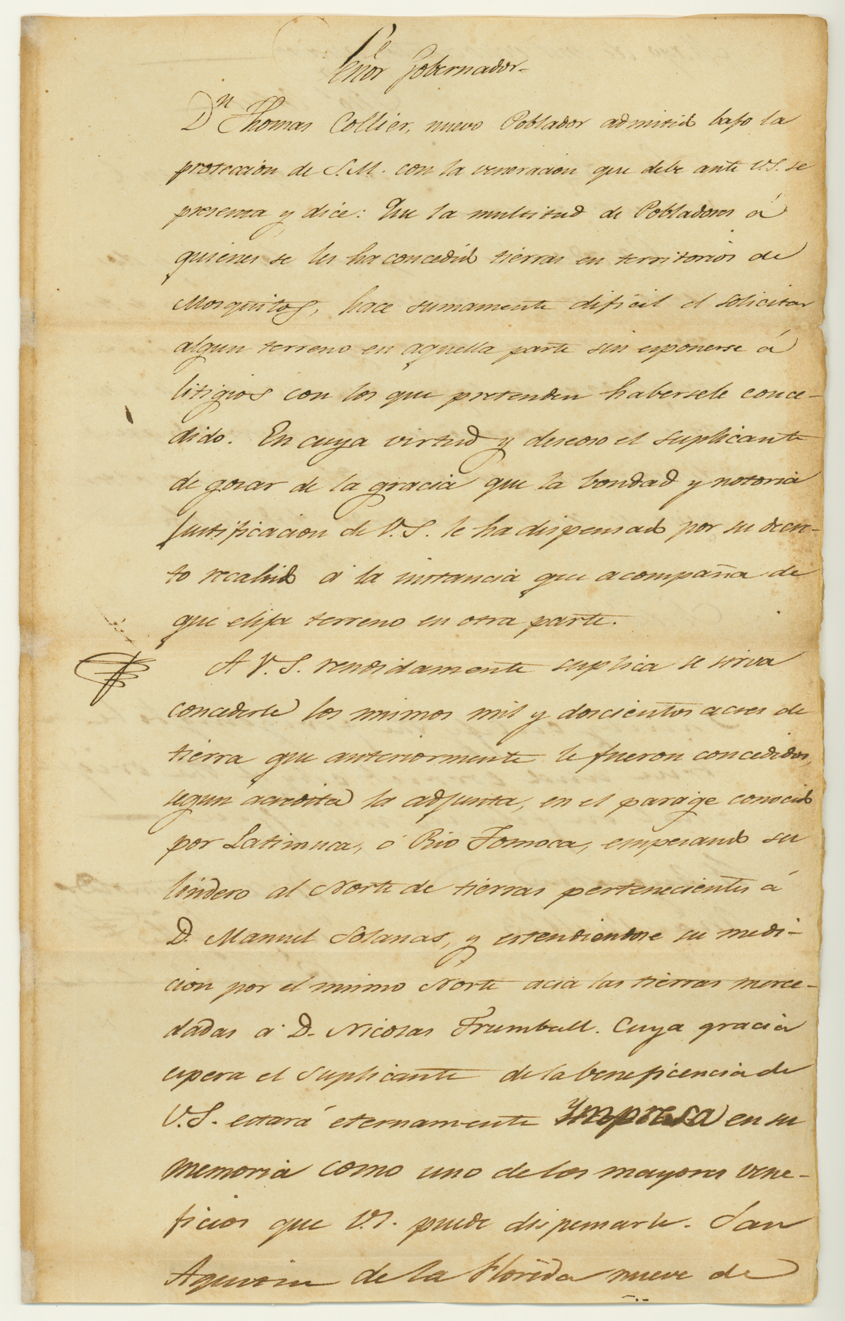 Señor Gobernador.
Dn Thomas Collier, nuevo Poblador admitido bajo la
proteccion de S.M. con la veneracion que debe ante V.S. se
presenta y dice: Que la multitud de Pobladores á
quienes se les ha concedido tierras en territorios de
Mosquitos, hace sumamente dificil el solicitar
algun terreno en aquella parte sin esponerse á
litigios con los que pretenden habersele conce-
dido. En cuya virtud y deseoso el suplicante
de gosar de la gracia que la bondad y notoria
Justificacion de V.S. le ha dispensado por su decre-
to recahido á la instancia que acompaña de
que elija terreno en otra parte.
A V.S. rendidamente suplica se sirva
concederle los mismos mil y doscientos acres de
tierra que anteriormente le fueron concedidos,
segun acredita la adjunta, en el parage conocido
por Latimuca, ó Rio Tomoca, empesando su
lindero al Norte de tierras pertenecientes á
D. Manuel Solanas, y estendiendose su medi-
cion por el mismo Norte acia las tierras merce-
dadas á D. Nicolas Trumball. Cuya gracia
espera el Suplicante de la beneficencia de
V.S. estará eternamente Impresa en su
memoria como uno de los mayores bene-
ficios que V.S. puede dispensarle. San
Agustin de la Florida nueve de